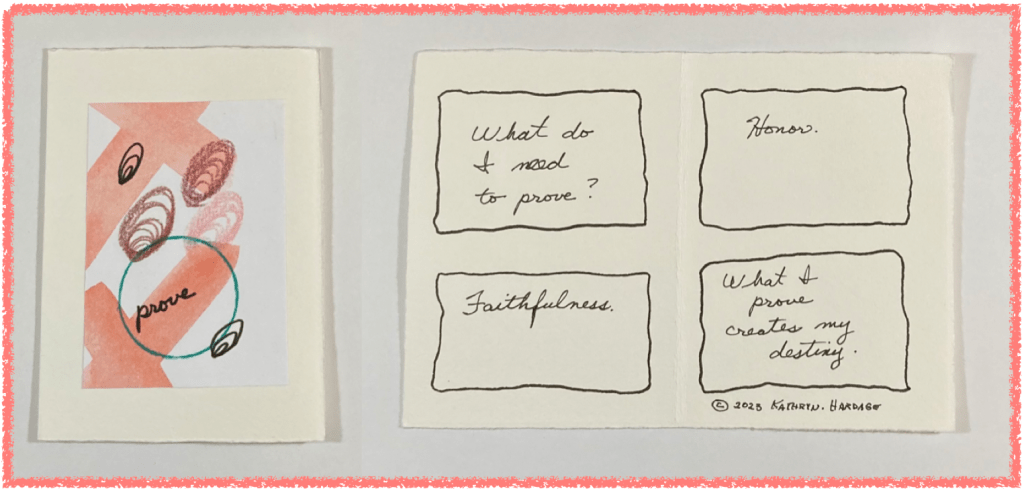 prove
What do
I need
to prove?
Honor.
Faithfulness.
What I
prove
creates my
destiny.
© 2023 KATHRYN. HARDAGE